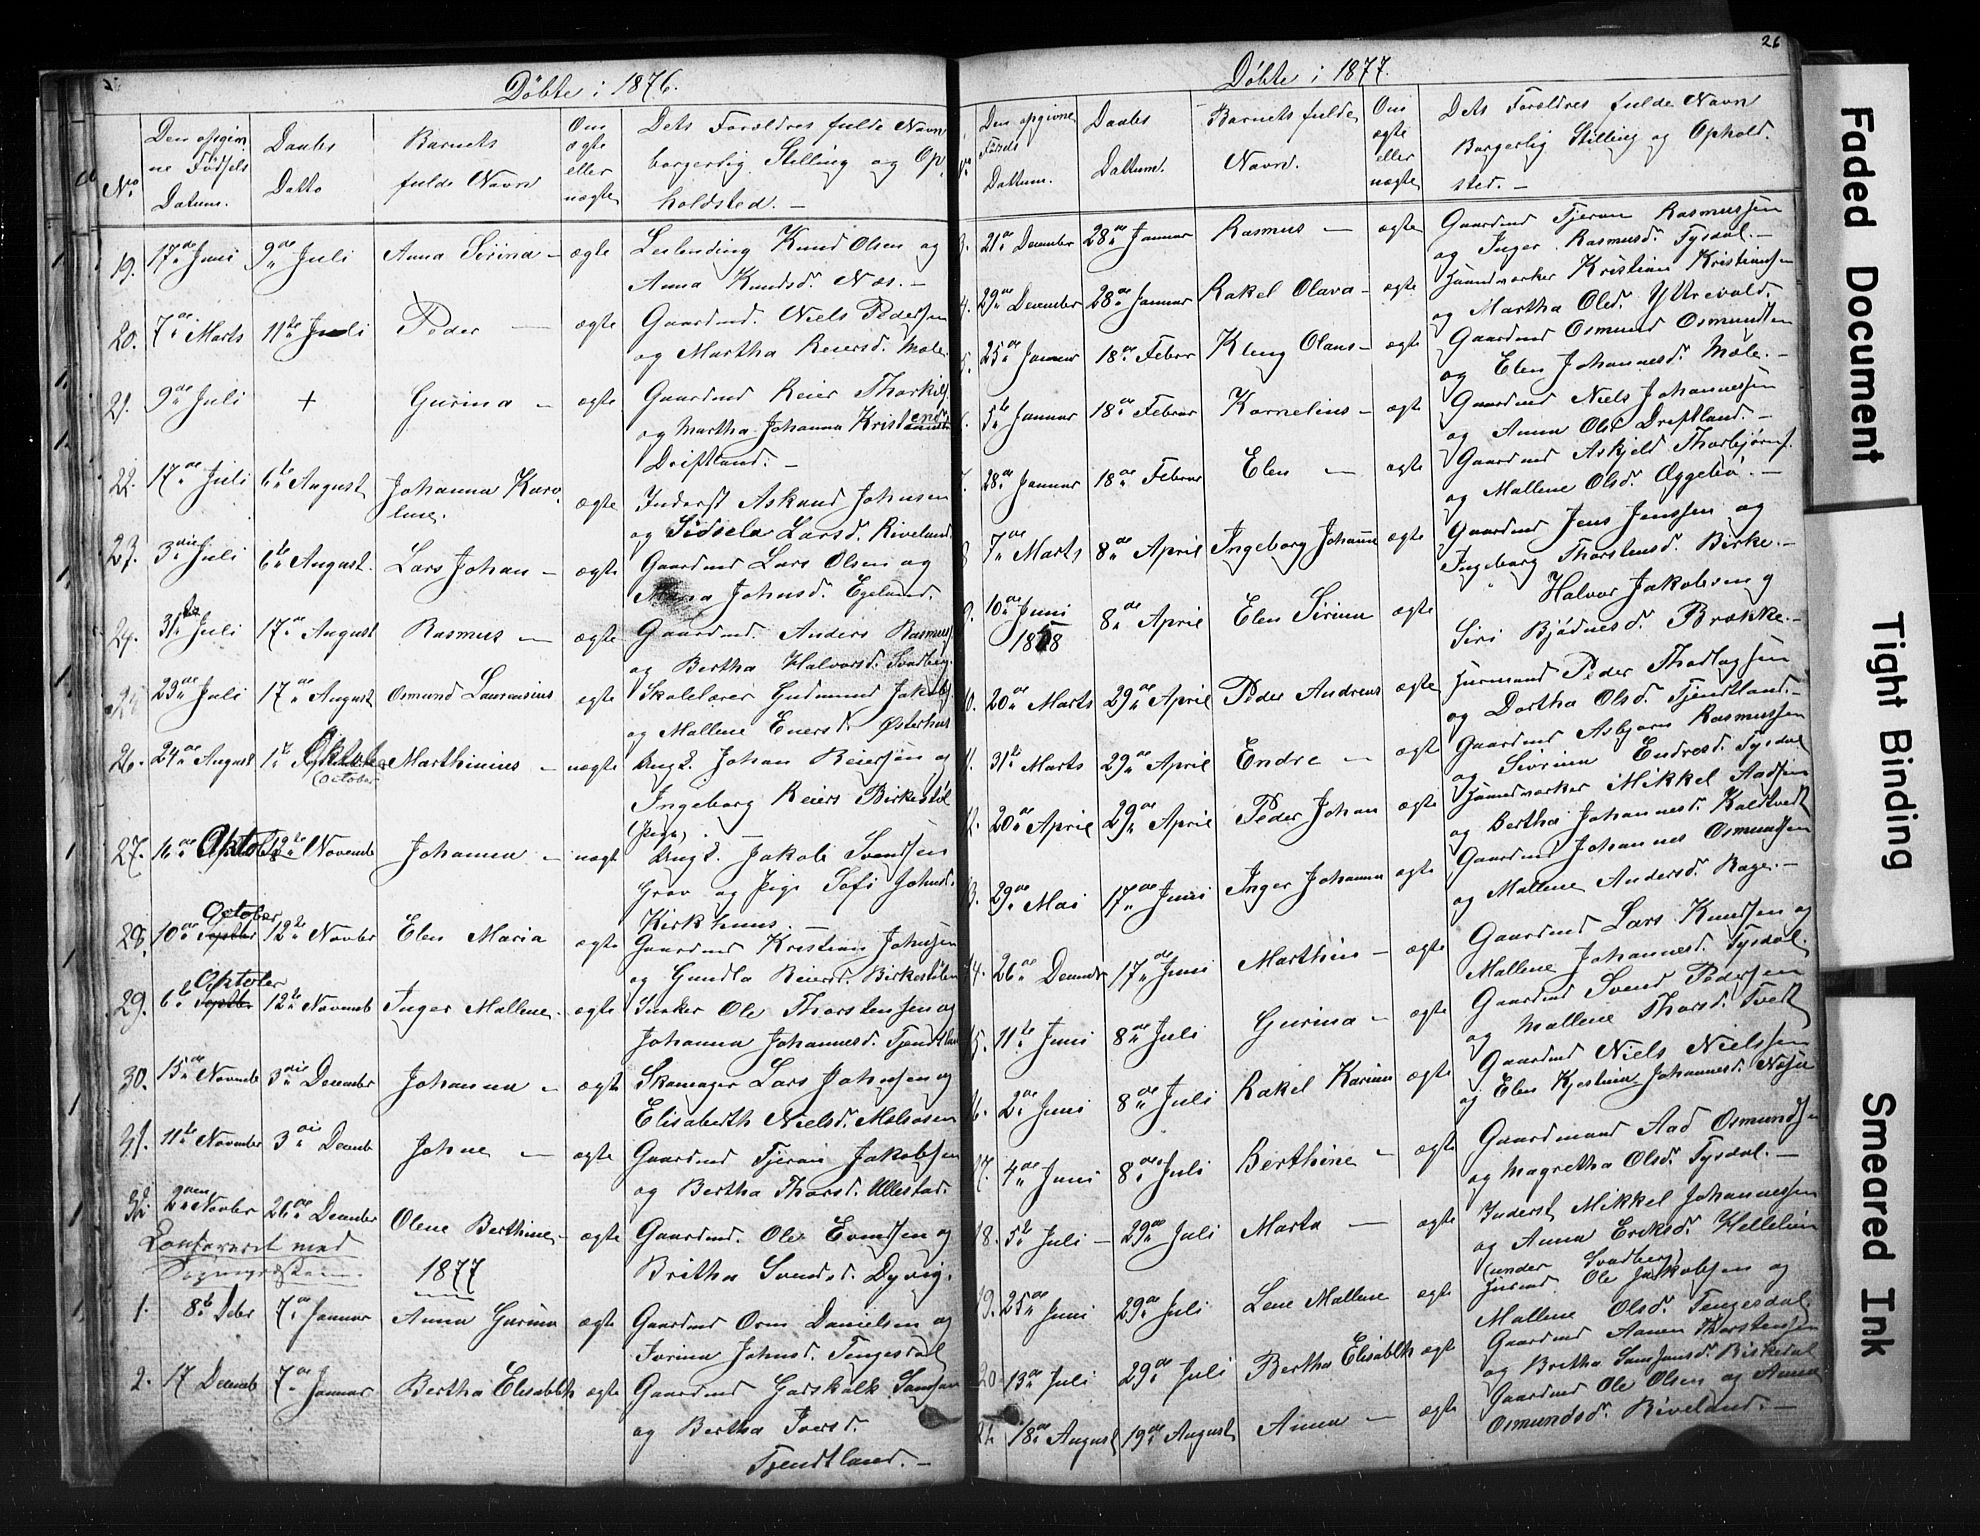 Döbte i 1876.
No
Den opgiv-
ne Födsels
Datum.
Daabs
Datto
Barnets
fulde Navn
Om
ægte
eller
uægte
Dets Forældres fulde Navn
borgerlig Stilling og Op-
holdsted. –
19. 17de Juni 9de Juli Anna Sirina – ægte Leilending Knud Olsen og
Anna Knudsd. Næs. –
20. 7de Marts 11te Juli Peder – ægte Gaardmd. Niels Pedersen
og Martha Reiersd. Mæle.
21. 9de Juli + Gurina – ægte Gaardmd Reier Thorkils
og Martha Johanna
Driftland. –
22. 17de Juli 6te August Johanna Karo- ægte Inderst Askaud Johnsen
line.
og Sidsela Larsd. Riveland
23. 3die Juli 6te August. Lars Johan – ægte Gaardmd Lars Olsen og
Maria Johnsd. Egeland.
24. 31te Juli 17de August Rasmus – ægte Gaardmd. Anders Rasmus
og Bertha Halvorsd. Svadberg.
25 23de Juli 17de August Osmund Laurensius ægte Skolelærer Gudmund Jakobs
og Mallene Enersd. Østerhus
26. 24de August 1te Oktober Marthinius – uægte Ungk. Johan Reiersøn og
(October
Ingeborg Reiers Birkestöl
(Pige). –
27. 16de Oktob 12te Novemb Johanna – uægt Ungk. Jakob Svendsen
Grov og Pige Sofi Johnsd.
Kirkhuus. –
October
28. 10de Septber 12te Novber Elen Maria ægte Gaardmd Kristian Johnsen
og Gundla Reiersd. Birkestölen
Oktober
29. 6te Septbr 12te Novemb Inger Mallene – ægte Ole Thorstensen og
Johanna Johannesd. Tjendtland
30. 15de Novemb 3die December Johanna – ægte Skomager Lars Johnsen og
Elisabeth Nielsd. Molaasen
31. 11te November 3die Decemb Johne – ægte Gaardmd Tjeran Jakobsen
og Bertha Thorsd. Ullestad.
32. 2den Novber 26de December Olene Berthine – ægte Gaardmd. Ole Evindsen og
Britha Svendsd. Dyvig.
Konfereret med
Sognepræsten.
1877
1. 8de Debr 7de Januar Anna Gurina ægte Gaardmd Orm Danielsen og
Jorina Johnsd. Tengesdal
2. 17 Decemb 7de Januar Bertha Elisabeth ægte Gaardmd Godskalk Samson
og Bertha Iversd.
Tjendtland. –
26
Döbte i 1877.
Den opgivne
Födsels
Dattum.
Daabs
Dattum.
Barnets fulde
Navn.
Om
ægte
eller
uægte
Dets Forældres fulde Navn
Borgerlig Stilling og Ophold-
sted. –
3. 21de December 28de Januar Rasmus – ægte Gaardmd Tjeran Rasmussen
og Inger Rasmusd. Tysdal. –
4. 29de December 28de Januar Rakel Olava – ægte Haandværker Kristian Kristiansen
og Martha Olsd. Y. Urevold.
5. 25de Januar 18de Februar Kleng Olaus – ægte Gaardmd Osmund Osmundsen
og Elen Johannesd. Mæle. –
6. 5te Januar 18de Februar Kornelius – ægte Gaardmd Niels Johannessen
og Anna Olsd Driftland. –
7. 28de Januar 18de Februar Elen – ægte Gaardmd Askjeld Thorbjørns.
og Mallene Olsd. Eggebö. –
8 7de Marts 8de April Ingeborg Johanne ægte Gaardmd Jens Jenssen og
Ingeborg Thorstensd. Birke. –
9. 10de Juni 8de April Elen Sirina ægte " Halvor Jakobsen og
1868
Siri Bjödnesd. Brække. –
10. 20de Marts 29de April Peder Andreas ægte Huusmand Peder Thollagsen
og Dortha Olsd. Tjendtland. –
11. 31te Marts 29de April Endre – ægte Gaardmd Asbjørn Rasmussen
og Sivrina Endresd. Tysdal
12. 20de April 29de April Peder Johan ægte Haandværker Mikkel Aadsen
og Bertha Johannesd. Kaldtvedt
13. 29de Mai 17de Juni Inger Johanna ægte Gaardmd Johannes Osmundsen
og Mallene Andersd. Bage. –
14. 26de Decembr 17de Juni Marthin – ægte Gaardmd Lars Knudsen og
Mallene Johannesd. Tysdal.
15. 11te Juni 8de Juli Gurina – ægte Gaardmd Svend Pedersen
og Mallene Thorsd. Tvedt
16. 2de Juni 8de Juli Rakel Karine ægte Gaardmd Niels Nielssen
og Elen Kjestina Johannesd. Næsu
17. 4de Juni 8de Juli Berthine – ægte Gaardmand Aad Osmundsen
og Magretha Olsd. Tysdal. –
18. 5te Juli – 29de Juli Marta – ægte Inderst Mikkel Johannessen
og Anna Eriksd. Hellelien
(under Svadberg)
19. 25de Juni 29de Juli Lene Mallene ægte Huusmd Ole Jakobsen og
Mallene Olsd. Tengesdal.
20. 13de Juli 29de Juli Bertha Elisabeth ægte Gaardmd Aanen Thorstensen
og Britha Samsonsd. Birkedal
21. 18de August 19de August Anna – ægte Gaardmd Ole Olsen og Anna
Osmundsd. Riveland. –
Faded Document
Tight Binding
Smeared Ink